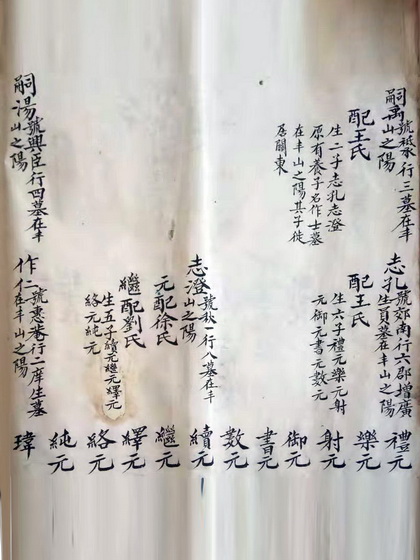 嗣禹號祗承行三墓在丰
山之陽
配王氏
生二子志孔志澄
原有養子名作士墓
在丰山之陽其子徙
居關東
嗣湯號興臣行四墓在丰
山之陽
志孔號郊南行六郡增廣
生員墓在丰山之陽
配王氏
生六子禮元樂元射
元御元書元數元
志澄號秋一行八墓在丰
山之陽
元配徐氏
繼配劉氏
生五子續元繼元繹元
絡元純元
作仁號惠菴行二庠生墓
在丰山之陽
禮元
樂元
射元
御元
書元
數元
續元
繼元
繹元
絡元
純元
瑋